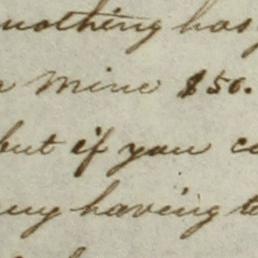 nothing has
mine $50.
but if you c
having t